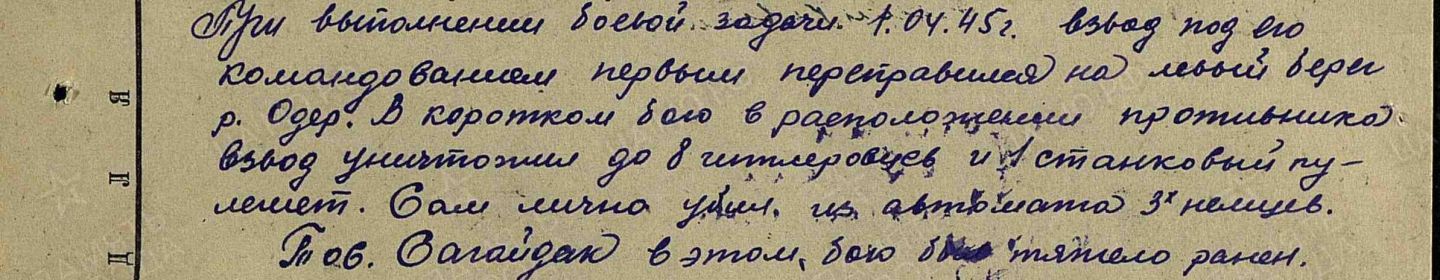 При выполнении боевой задачи 1.04.45г. взвод под его
командованием первым переправился на левый берег
р. Одер. В коротком бою в расположении противника
взвод уничтожил до 8 гитлеровцев и 1 станковый пу-
лемет. Сам лично убил из автомата 3х немцев.
Тов. Сагайдак в этом бою был тяжело ранен.
Д Л Я